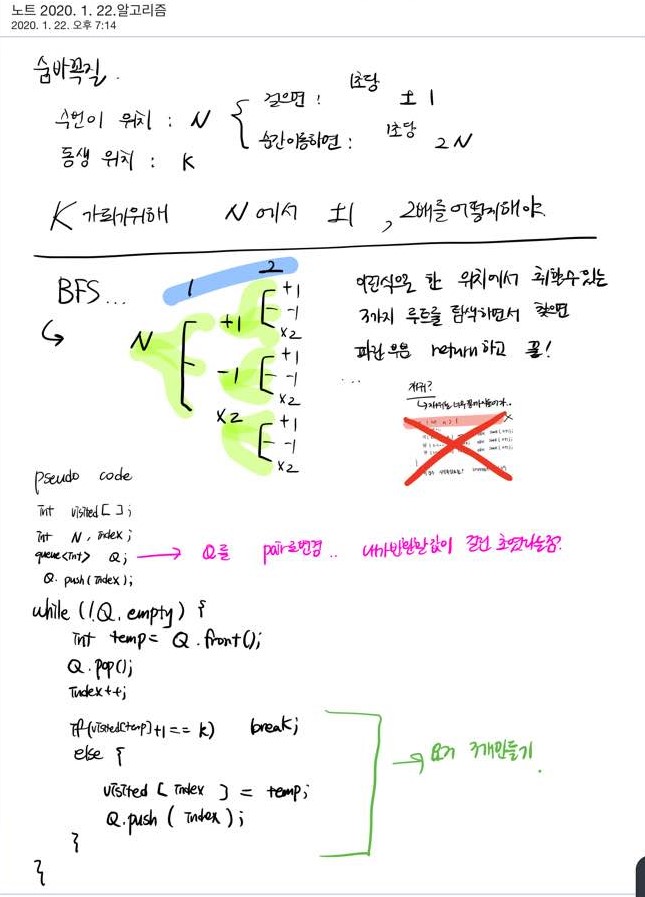 노트 2020. 1. 22.알고리즘
2020. 1. 22. 오후 7:14
숨바꼭질.
수빈이 위치 : N
걸으면 : 1초당 ±1
순간이동하면 : 1초당 2N
동생 위치 : K
K 가 되기위해 N에서 ±1 , 2배를 어떻게해야
BFS...
1 2
N
+1
-1
x2
+1
-1
x2
+1
-1
x2
+1
-1
x2
이런식으로 한 위치에서 취할수있는
3가지 루트를 탐색하면서 찾으면
파란 return하고 끝!
...
재귀?
pseudo code
int visited[ ];
int N, index;
queue<int> Q;
Q를 pair로변경.. 내가반환할값이 걸린 초였다는점?
Q. push(index);
while (!Q. empty) {
int temp = Q. front();
Q. pop();
index++;
if(visited[temp]+1 == k) break;
else {
visited [ index ] = temp;
Q.push ( index );
}
}
요거 3개만들기.